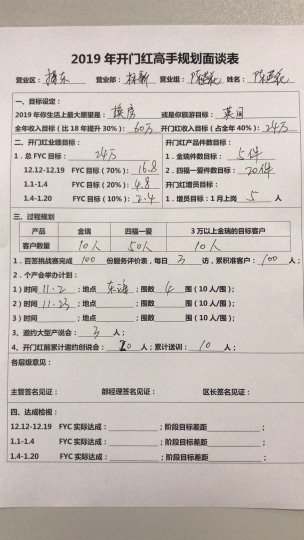 2019年开门红高手规划面谈表
营业区： 营业部： 营业组： 姓名：
一、目标设定：
2019年你生活上最大愿望是：换房 或是你旅游目标：英国
全年收入目标（比18年提升30%）：60万 开门红收入目标（占全年40%）：24万
二、开门红业绩目标： 开门红产品件数目标：
1．总FYC目标：24万 1．金瑞件数目标：5件
12.12-12.19 FYC目标（70%）：16.8 2．四福一爱件数目标：20件
1.1-1.4 FYC目标（20%）：4.8 开门红增员目标：
1.4-1.20 FYC目标（10%）：2.4 1．增员目标：1月上岗 5 人
三、过程规划
产品 金瑞 四福一爱 3万以上金瑞的目标客户
客户数量 10人 50人 10人
1．百签挑战赛完成 100 份服务评价表，每日 3 访，累积准客户：100 人；
2．个产会举办计划：
1）时间 11.2 ；地点 ；围数 4 围（10人/围）；
2）时间 11.23 ；地点 ；围数 围（10人/围）；
3）时间 ；地点 ；围数 围（10人/围）；
3、邀约大型产说会：3 人；
4、开门红前累计邀约创说会：20 人；累计送训：10 人；
各层级意见：
主管签名见证： 部经理签名见证： 区长签名见证：
四、达成检视：
12.12-12.19 FYC实际达成： ；阶段目标差距 ；
1.1-1.4 FYC实际达成： ；阶段目标差距 ；
1.4-1.20 FYC实际达成： ；阶段目标差距 ；